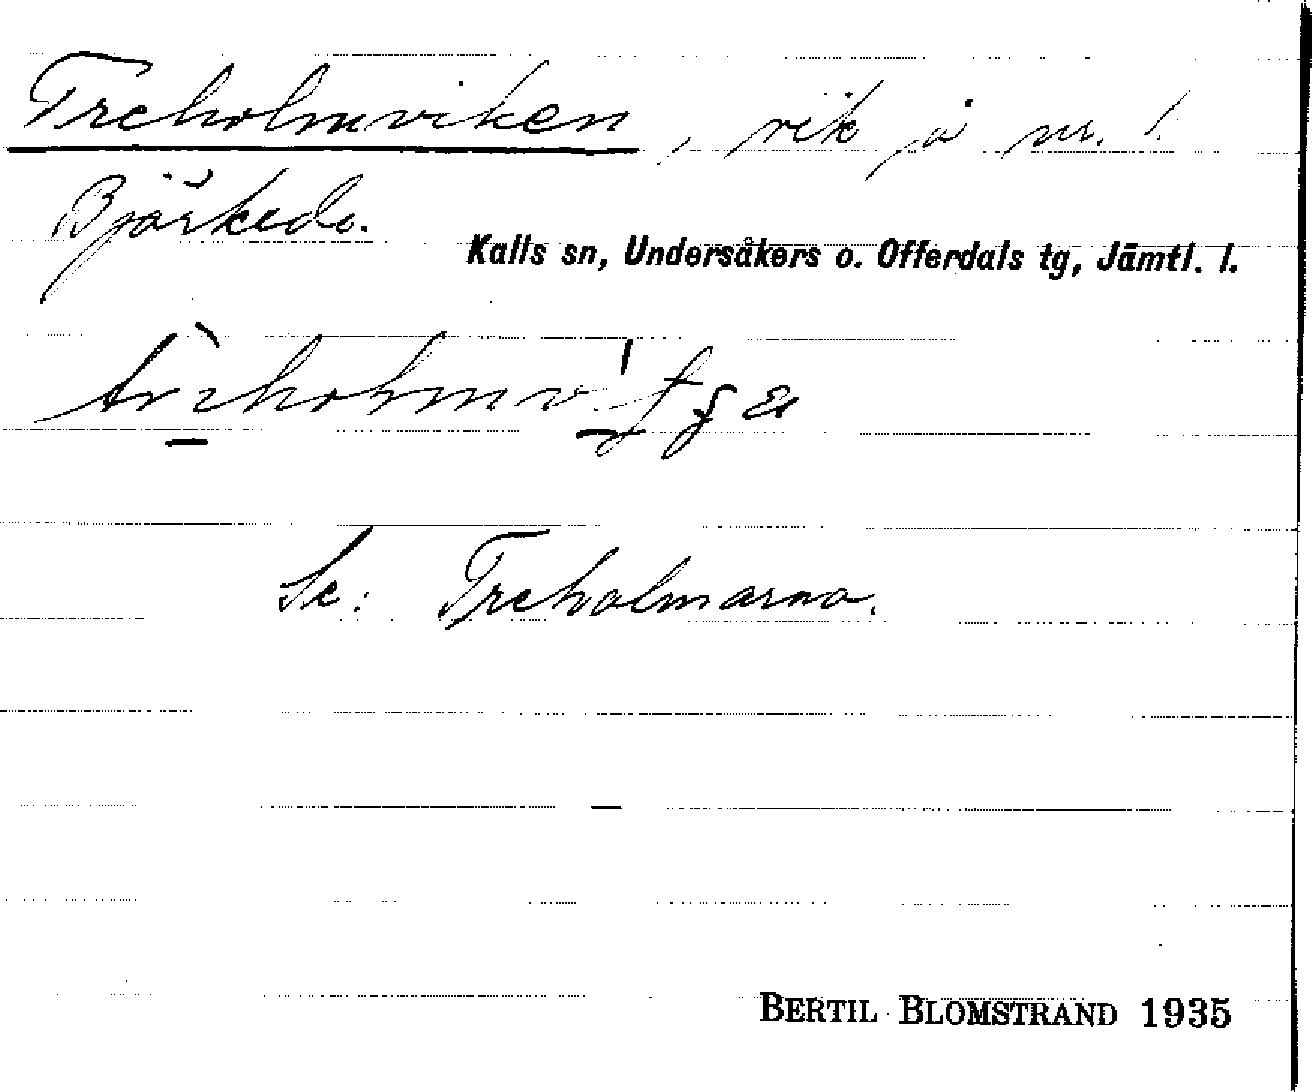 Treholmviken, vik på nr. 1
Björkede.
Kalls sn, Undersåkers o. Offerdals tg, Jämtl. l.
Se: Treholmarna.
BERTIL BLOMSTRAND 1935